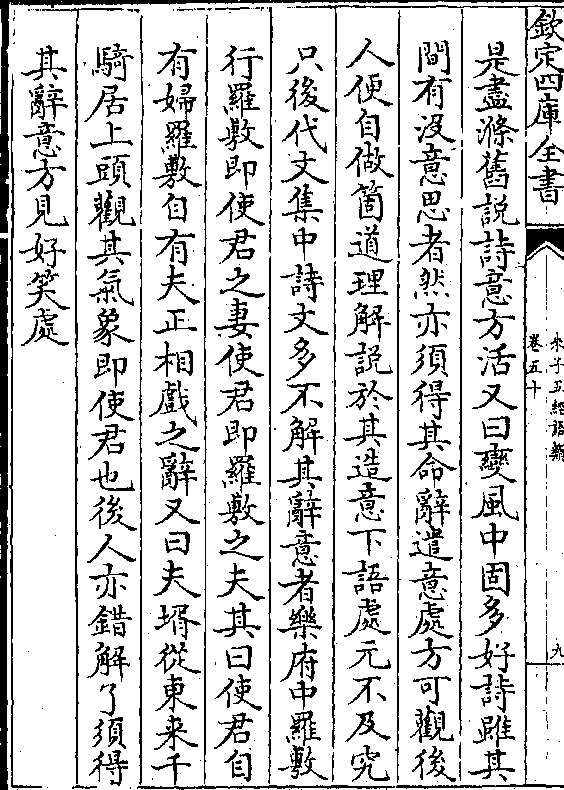 欽定四庫全書
朱子五經語類
卷五十
九
是盡滌舊説詩意方活又曰變風中固多好詩雖其
間有没意思者然亦須得其命辭遣意處方可觀後
人便自做箇道理解説於其造意下語處元不及究
只後代文集中詩文多不解其辭意者樂府中羅敷
行羅敷即使君之妻使君即羅敷之夫其曰使君自
有婦羅敷自有夫正相戲之辭又曰夫壻從東来千
騎居上頭觀其氣象即使君也後人亦錯解了須得
其辭意方見好笑處